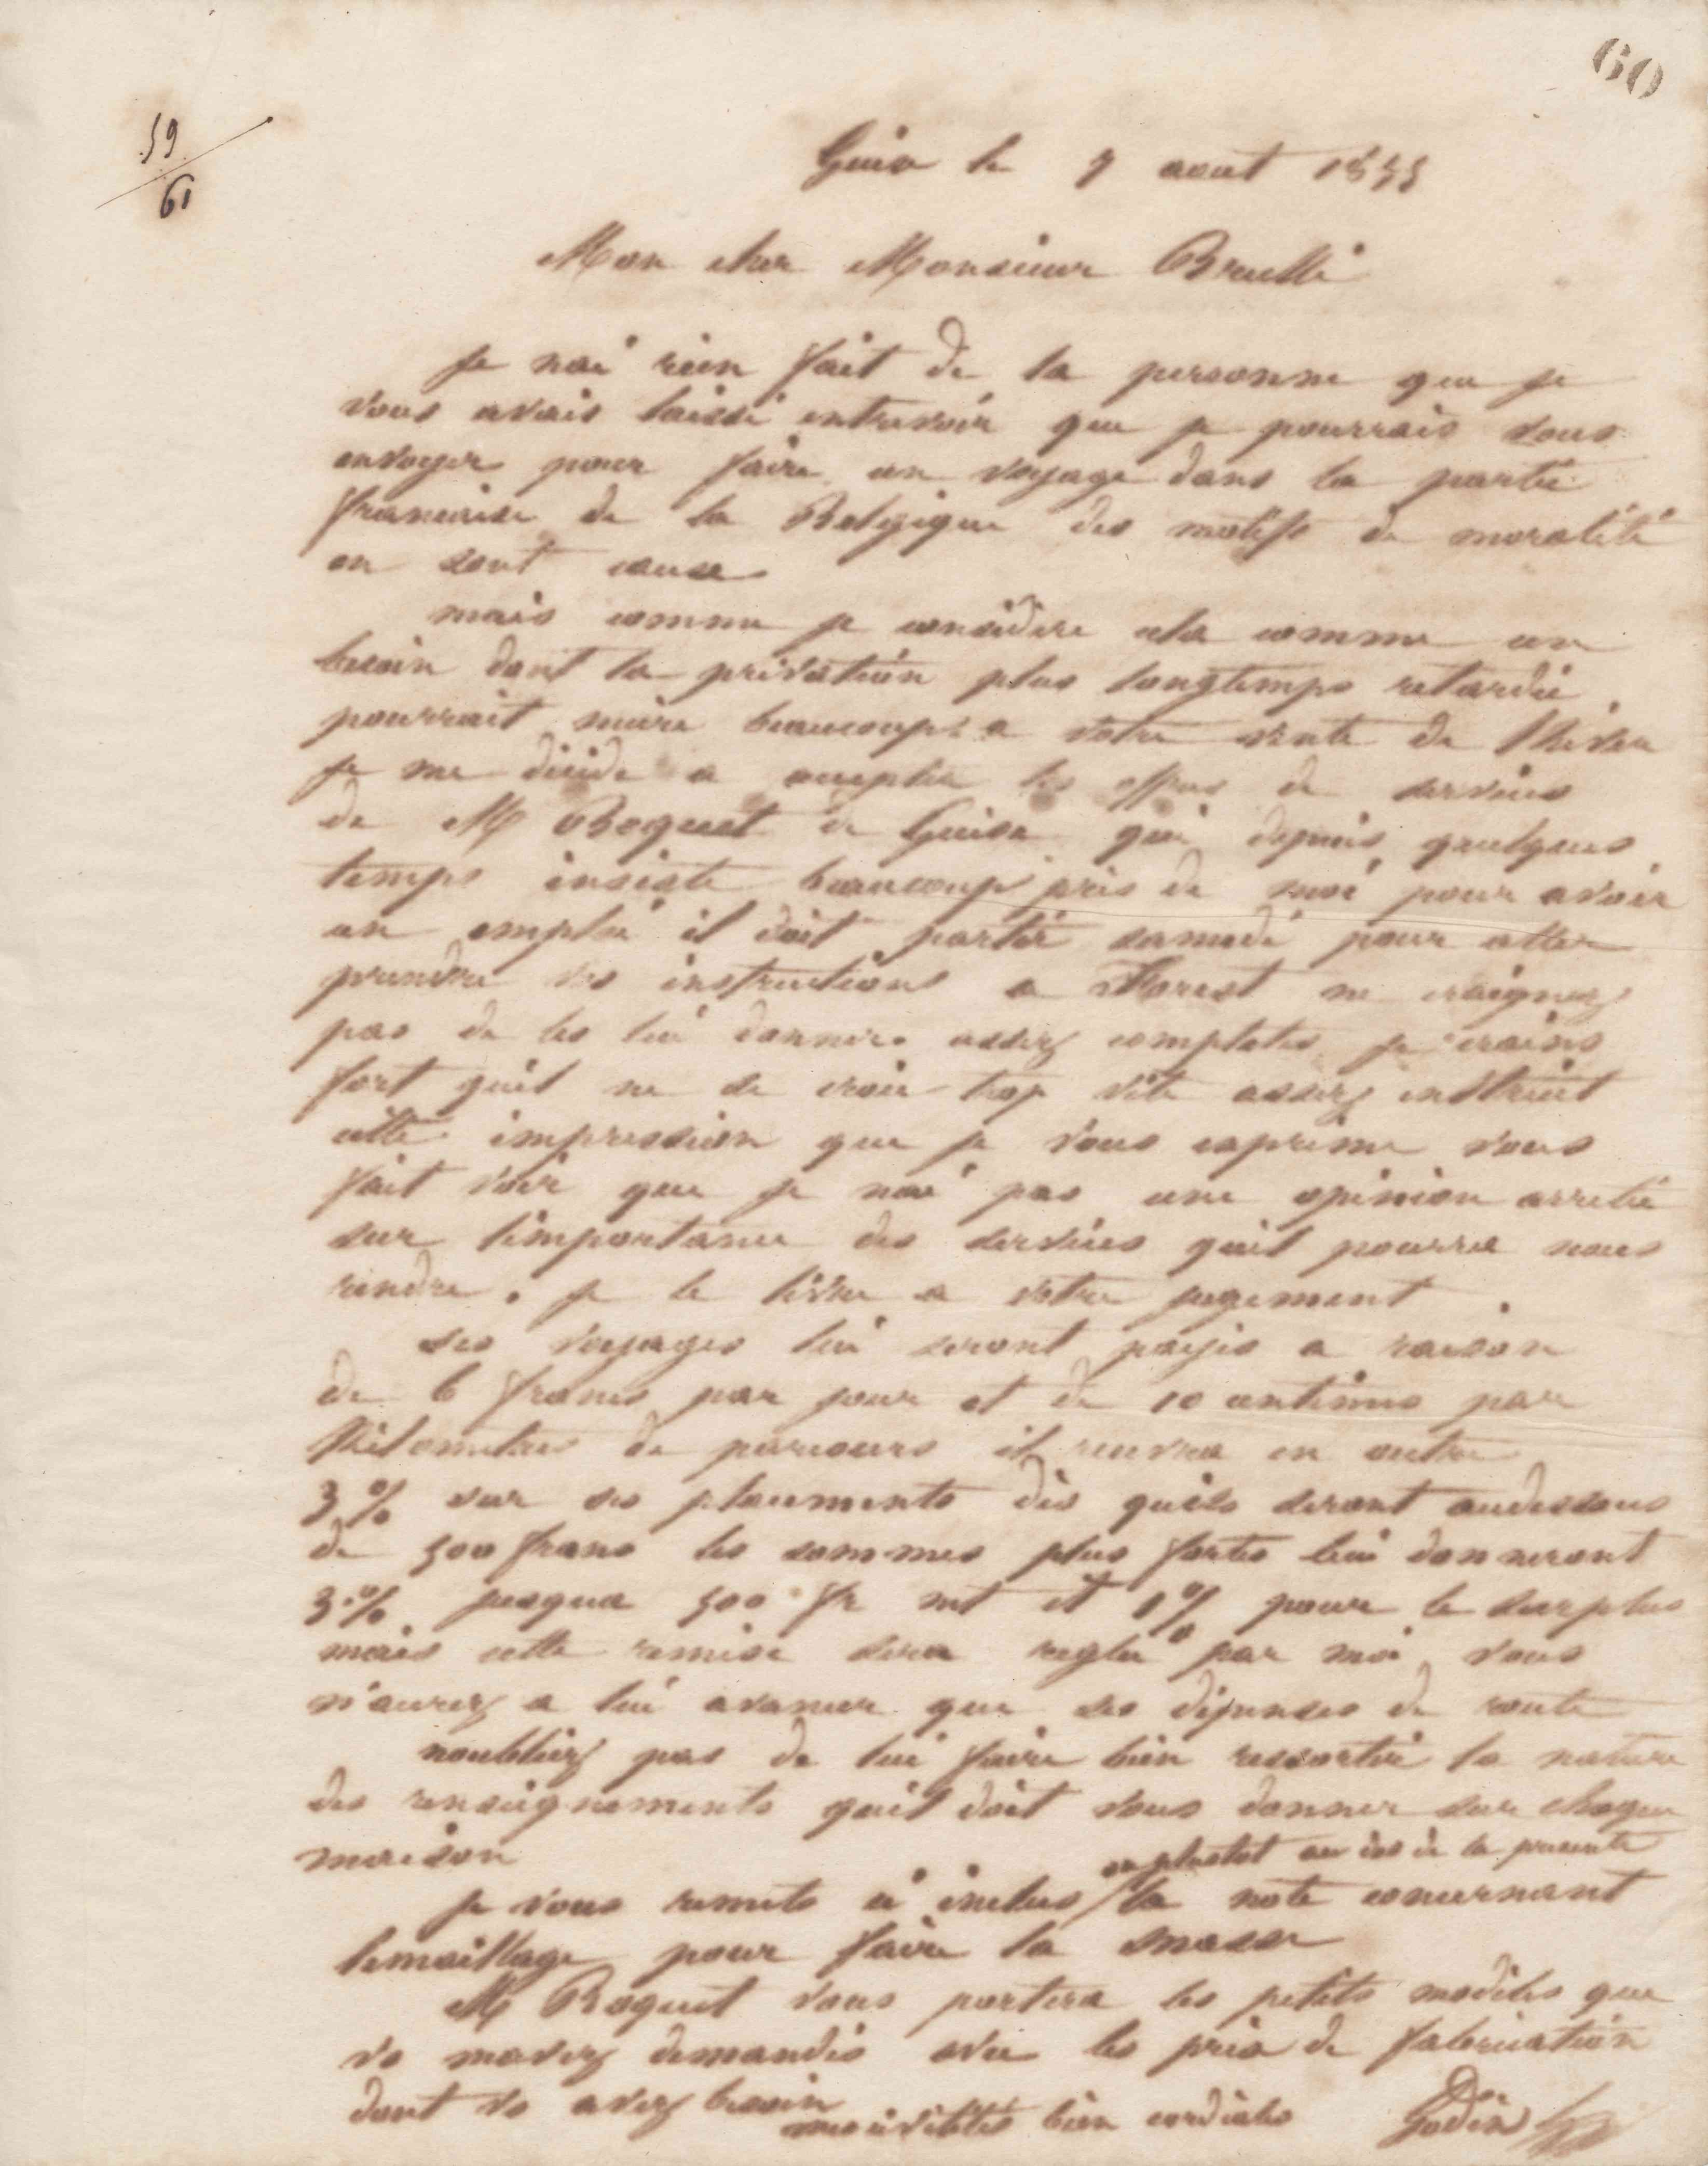 60
59
61
Guise le 7 aout 1855
Mon cher Monsieur Brullé
Je nai rien fait de la personne que je
vous avais laissé entrevoir que je pourrais vous
envoyer pour faire un voyage dans la partie
francaise de la Belgique des motifs de moralité
en sont cause
mais comme je considère cela comme un
besoin dont la privation plus longtemps retardée
pourrait nuire beaucoup a votre vente de lhiver
je me décide a accepter les offres de services
de M Boquet de Guise qui depuis quelques
temps insiste beaucoup près de moi pour avoir
un emploi il doit partir samedi pour aller
prendre vos instructions a Forest ne craignez
pas de les lui donner assez completes je crains
fort quil ne se croie trop vite assez instruit
cette impression que je vous exprime vous
fait voir que je nai pas une opinion arretée
sur limportance des services quil pourra nous
rendre. je le livre a votre jugement
ses voyages lui seront payés a raison
de 6 francs par jour et de 10 centimes par
kilometres de parcours il recevra en outre
3% sur ses placements dès quils seront audessous
de 500 francs les sommes plus fortes lui donneront
3% jusqua 500 fr net et 1% pour le surplus
mais cette remise sera reglée par moi vous
n'aurez a lui avancer que ses dépenses de route
noubliez pas de lui faire bien ressortir la nature
des renseignements quil doit vous donner sur chaque
maison
ou plustot au dos de la presente
je vous remets ci inclus la note concernant
lemaillage pour faire la masse
M Boquet vous portera les petits modèles que
vs mavez demandés avec les prix de fabrication
dont vs avez besoin
mes civilités bien cordiales Godin